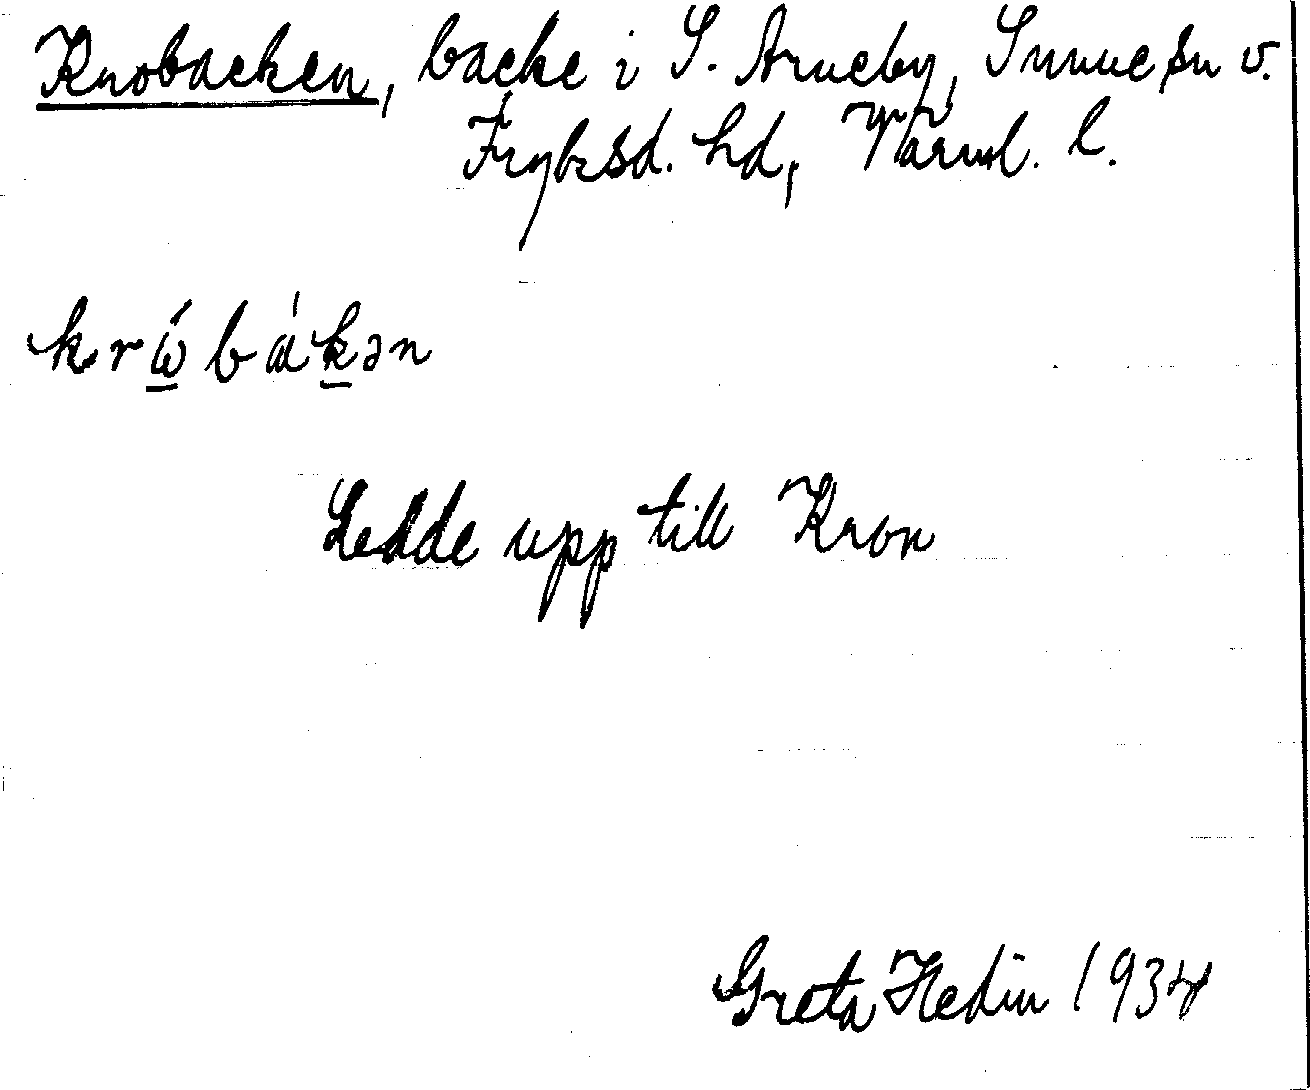 Krobacken, backe i S. Arneby, Sunne sn v.
Frykesd. hd, Värml. l.
krώbákən
Ledde upp till Kron
Greta Hedin 1934